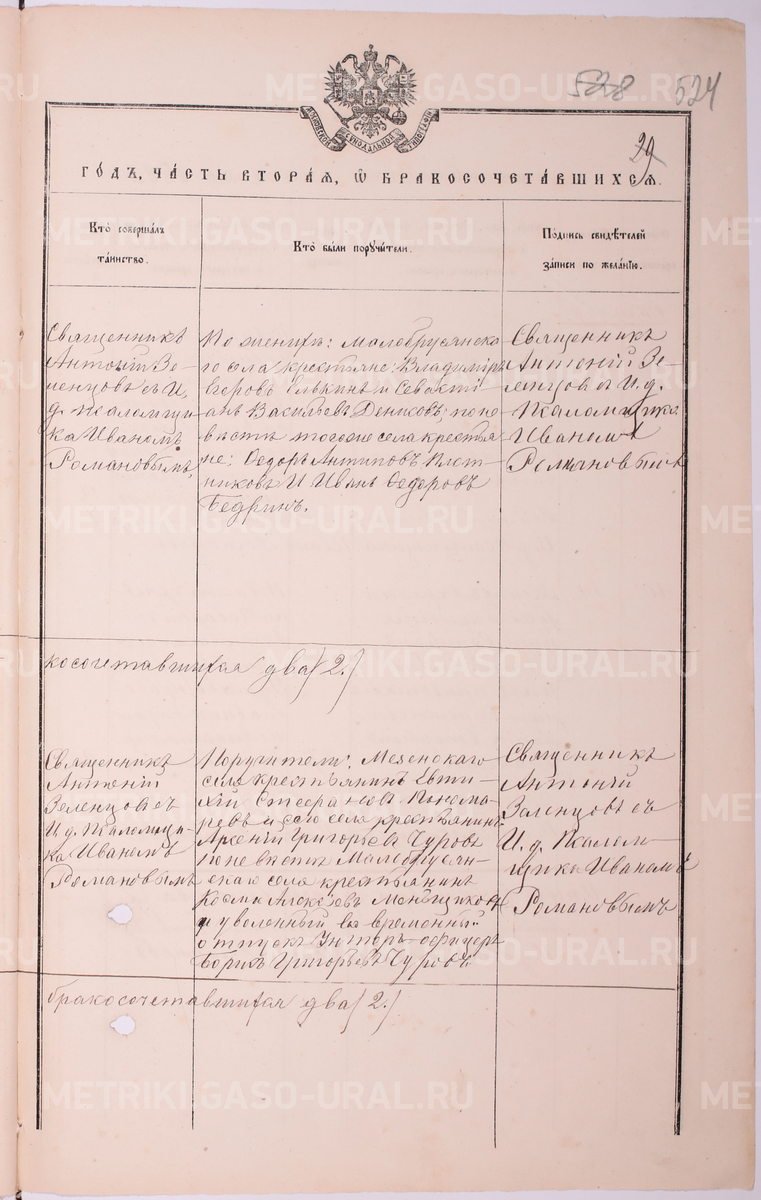 METRIKI.GASO-URAL.RU
528 524
МОСКОВСКОЙ СѴНОДАЛЬНОЙ ТИПОГРАФІИ
29
ГО́ДЪ, ЧА́СТЬ ВТОРА́Я, Ѡ҆ БРАКОСОЧЕТА́ВШИХСѦ.
Кто̀ соверша́лъ
та́инство.
Кто̀ бы́ли поручи́тели.
По́дпись свидѣ́телей
за́писи по жела́нію.
Священникъ
Антоній Зе-
ленцовъ съ И.
д. псаломщи-
ка Иваномъ
Романовымъ,
По женихѣ: Малобрусянска-
го села крестьяне: Владиміръ
Егоровъ Елькинъ и Севасті-
анъ Васильевъ Денисовъ; по не
вѣстѣ того же села крестья
не: Ѳедоръ Антиповъ Плот-
никовъ И Иванъ Ѳедоровъ
Бедринъ.
Священникъ
Антоній Зе-
ленцовъ съ И. д.
Псаломщика
Иваномъ
Романовымъ
косочетавшихся два (2.)
Священникъ
Антоній
Зеленцовъ съ
И. д. Псаломщи-
ка Иваномъ
Романовымъ
Поручители: Мезенскаго
села крестьянинъ Евти-
хій Понома-
ревъ и сего села крестьянинъ
Арсеній Григорьевъ Чуровъ
по невѣстѣ Малобрусян-
скаго села крестьянинъ
Косма Алексѣевъ
и уволенный въ временный
отпускъ Унтеръ-офицеръ
Борисъ Григорьевъ Чуровъ
Священникъ
Антоній
Зеленцовъ съ
И. д. Псалом-
щика Иваномъ
Романовымъ
бракосочетавшихся два (2.)